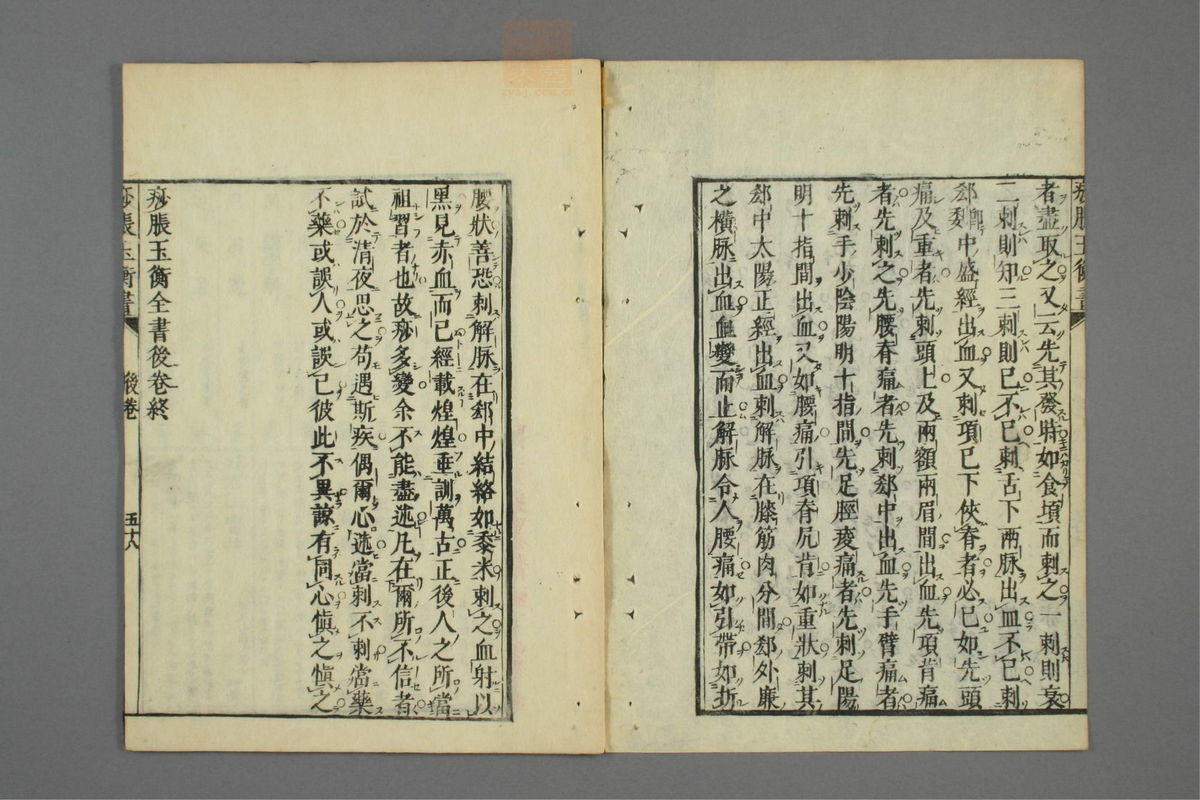 痧脹玉衡書
者盡取之又云先其發時如食頃而刺之一刺則衰
二刺則知三刺則已不已刺舌下兩脉出血不已刺
郄中盛經出血又刺項已下俠脊者必已如先頭
痛及重者先刺頭上及兩額兩眉間出血先項背痛
者先刺之先腰脊痛者先刺郄中出血先手臂痛者
先刺手少陰陽明十指間先足脛痠痛者先刺足陽
明十指間出血又如腰痛引項脊尻背如重狀刺其
郄中太陽正經出血刺解脉在膝筋肉分間郄外廉
之橫脉出血血變而止解脉令人腰痛如引帶如折
腰狀善恐刺解脉在郄中結絡如黍米刺之血射以
黑見赤血而已經載煌煌垂訓萬古正後人之所當
祖習者也故痧多變余不能盡述凡在爾所不信者
試於清夜思之苟遇斯疾偶爾心迯當刺不刺當藥
不藥或誤人或誤已彼此不異諒有同心慎之慎之
痧脹玉衡全書後卷終
痧脹玉衡書 後卷 五十八
zysj.com.cn